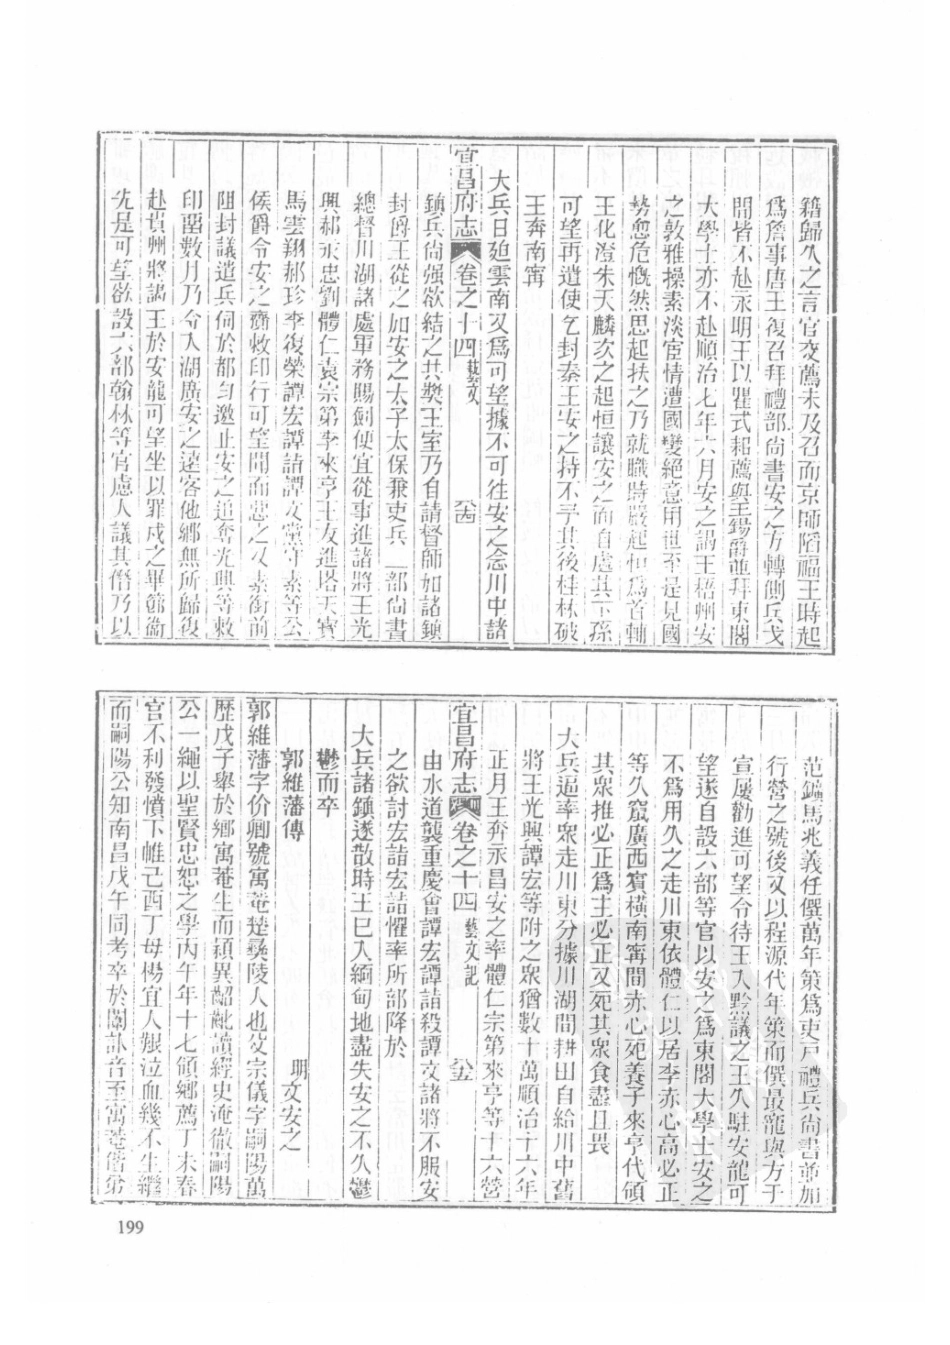 籍歸久之言官交薦未及召而京師陷福王時起
爲詹事唐王復召拜禮部尚書安之方轉側兵戈
間皆不赴永明王以瞿式耜薦與王錫爵並拜東閣
大學士亦不赴順治七年六月安之謁王梧州安
之敦雅操素淡宦情遭國變絕意用世至是見國
勢愈危慨然思起扶之乃就職時嚴起恒爲首輔
王化澄朱天麟次之起恒讓安之而自處其下孫
可望再遣使乞封秦王安之持不予其後桂林破
王奔南寧
大兵日廹雲南又爲可望據不可徃安之念川中諸
宜昌府志 卷之十四 藝文 八十四
鎮兵尚强欲結之共奬王室乃自請督師加諸鎮
封爵王從之加安之太子太保兼吏兵二部尚書
總督川湖諸處軍務賜劍便宜從事進諸將王光
興郝永忠劉體仁袁宗第李來亨王友進塔天寶
馬雲翔郝珍李復榮譚宏譚詣譚文黨守素等公
侯爵令安之齎敕印行可望聞而惡之又素銜前
阻封議遣兵伺於都匀邀止安之追奪光興等敕
印畱數月乃令入湖廣安之遠客他鄉無所歸復
赴貴州將謁王於安龍可望坐以罪戍之畢節衞
先是可望欲設六部翰林等官慮人議其僭乃以
范鑛馬兆義任僎萬年策爲吏戸禮兵尚書並加
行營之號後又以程源代年策而僎最寵與方于
宣屢勸進可望令待王入黔議之王久駐安龍可
望遂自設六部等官以安之爲東閣大學士安之
不爲用久之走川東依體仁以居李赤心高必正
等久竄廣西賓橫南寧間赤心死養子來亨代領
其衆推必正爲主必正又死其衆食盡且畏
大兵逼率衆走川東分據川湖間耕田自給川中舊
將王光興譚宏等附之衆猶數十萬順治十六年
正月王奔永昌安之率體仁宗第來亨等十六營
宜昌府志 卷之十四 藝文記 八十五
由水道襲重慶會譚宏譚詣殺譚文諸將不服安
之欲討宏詣宏詣懼率所部降於
大兵諸鎮遂散時王已入緬甸地盡失安之不久鬱
鬱而卒
郭維藩傳 明文安之
郭維藩字价卿號寓菴楚彞陵人也父宗儀字嗣陽萬
歷戊子舉於鄉寓菴生而穎異齠齔讀經史淹徹嗣陽
公一繩以聖賢忠恕之學丙午年十七領鄉薦丁未春
官不利發憤下帷己酉丁母楊宜人艱泣血幾不生繼
而嗣陽公知南昌戊午同考卒於闈訃音至寓菴偕弟
199